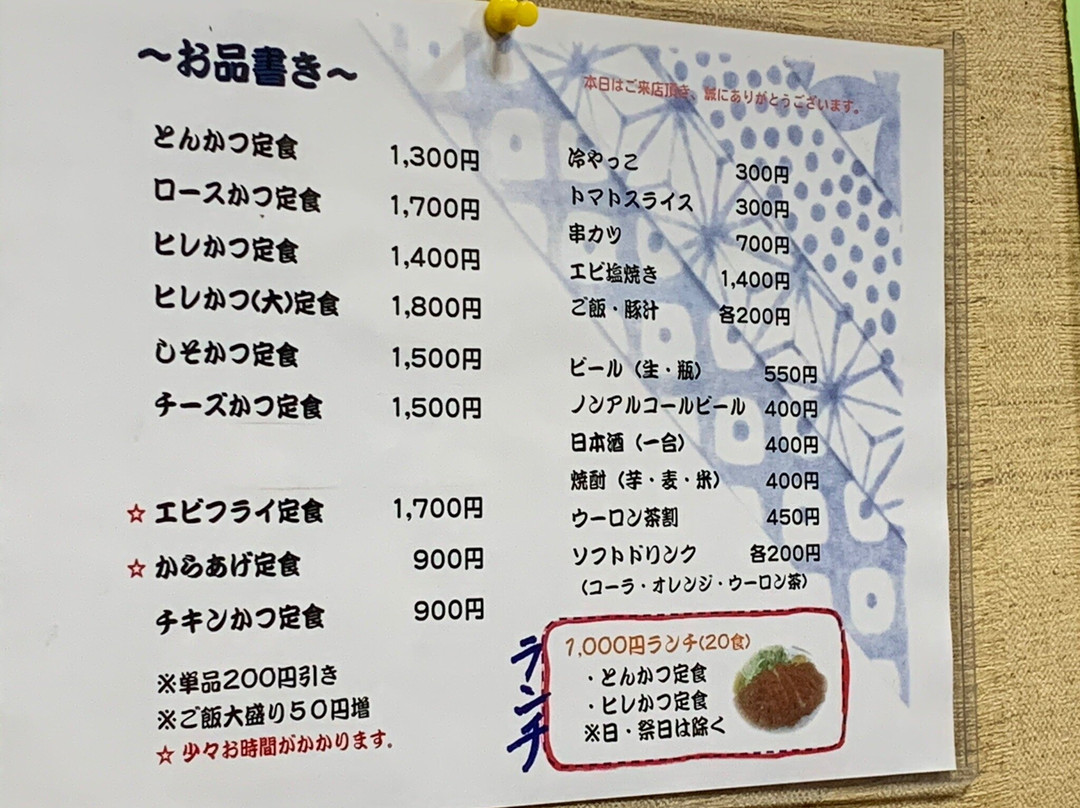 ～お品書き～
本日はご来店頂き、誠にありがとうございます。
とんかつ定食 1,300円
ロースかつ定食 1,700円
ヒレかつ定食 1,400円
ヒレかつ(大)定食 1,800円
しそかつ定食 1,500円
チーズかつ定食 1,500円
☆ エビフライ定食 1,700円
☆ からあげ定食 900円
チキンかつ定食 900円
※単品200円引き
※ご飯大盛り50円増
☆ 少々お時間がかかります。
冷やっこ 300円
トマトスライス 300円
串カツ 700円
エビ塩焼き 1,400円
ご飯・豚汁 各200円
ビール（生・瓶） 550円
ノンアルコールビール 400円
日本酒（一台） 400円
焼酎（芋・麦・米） 400円
ウーロン茶割 450円
ソフトドリンク 各200円
（コーラ・オレンジ・ウーロン茶）
ランチ
1,000円ランチ(20食)
・とんかつ定食
・ヒレかつ定食
※日・祭日は除く